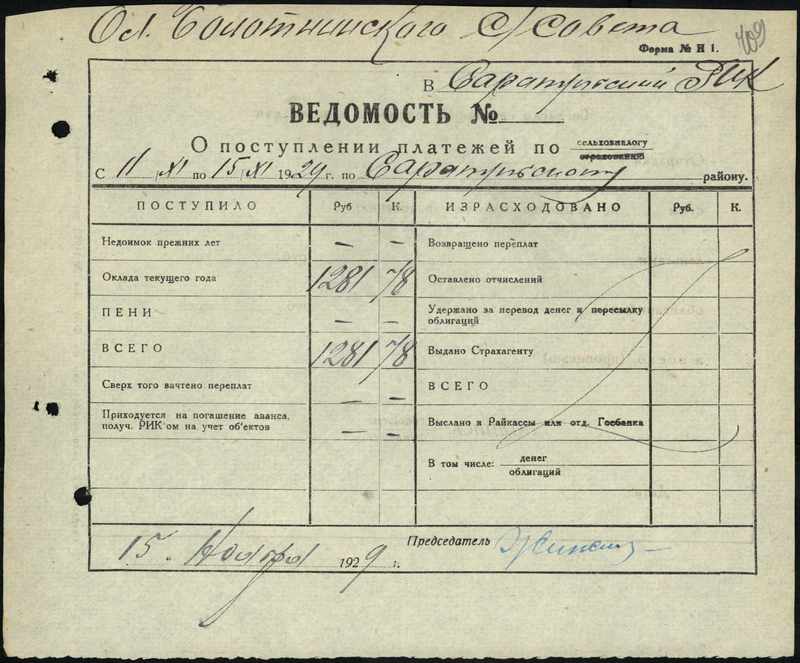 Ос. Болотнинского с/совета
409
Форма № Н 1.
В Саратузский РИК
ВЕДОМОСТЬ №
О поступлении платежей по сельхозналогу страхованию
С 11/XI по 15/XI 1929 г. по району.
ПОСТУПИЛО Руб К. ИЗРАСХОДОВАНО Руб. К.
Недоимок прежних лет — — Возвращено переплат
Оклада текущего года 1281 78 Оставлено отчислений
ПЕНИ — — Удержано за перевод денег и пересылку облигаций
ВСЕГО 1281 78 Выдано Страхагенту
Сверх того вачтено переплат — — ВСЕГО
Приходуется на погашение аванса, получ. РИК'ом на учет об'ектов — — Выслано в Райкассы или отд. Госбанка
В том числе: денег облигаций
15. Ноября 1929 г. Председатель